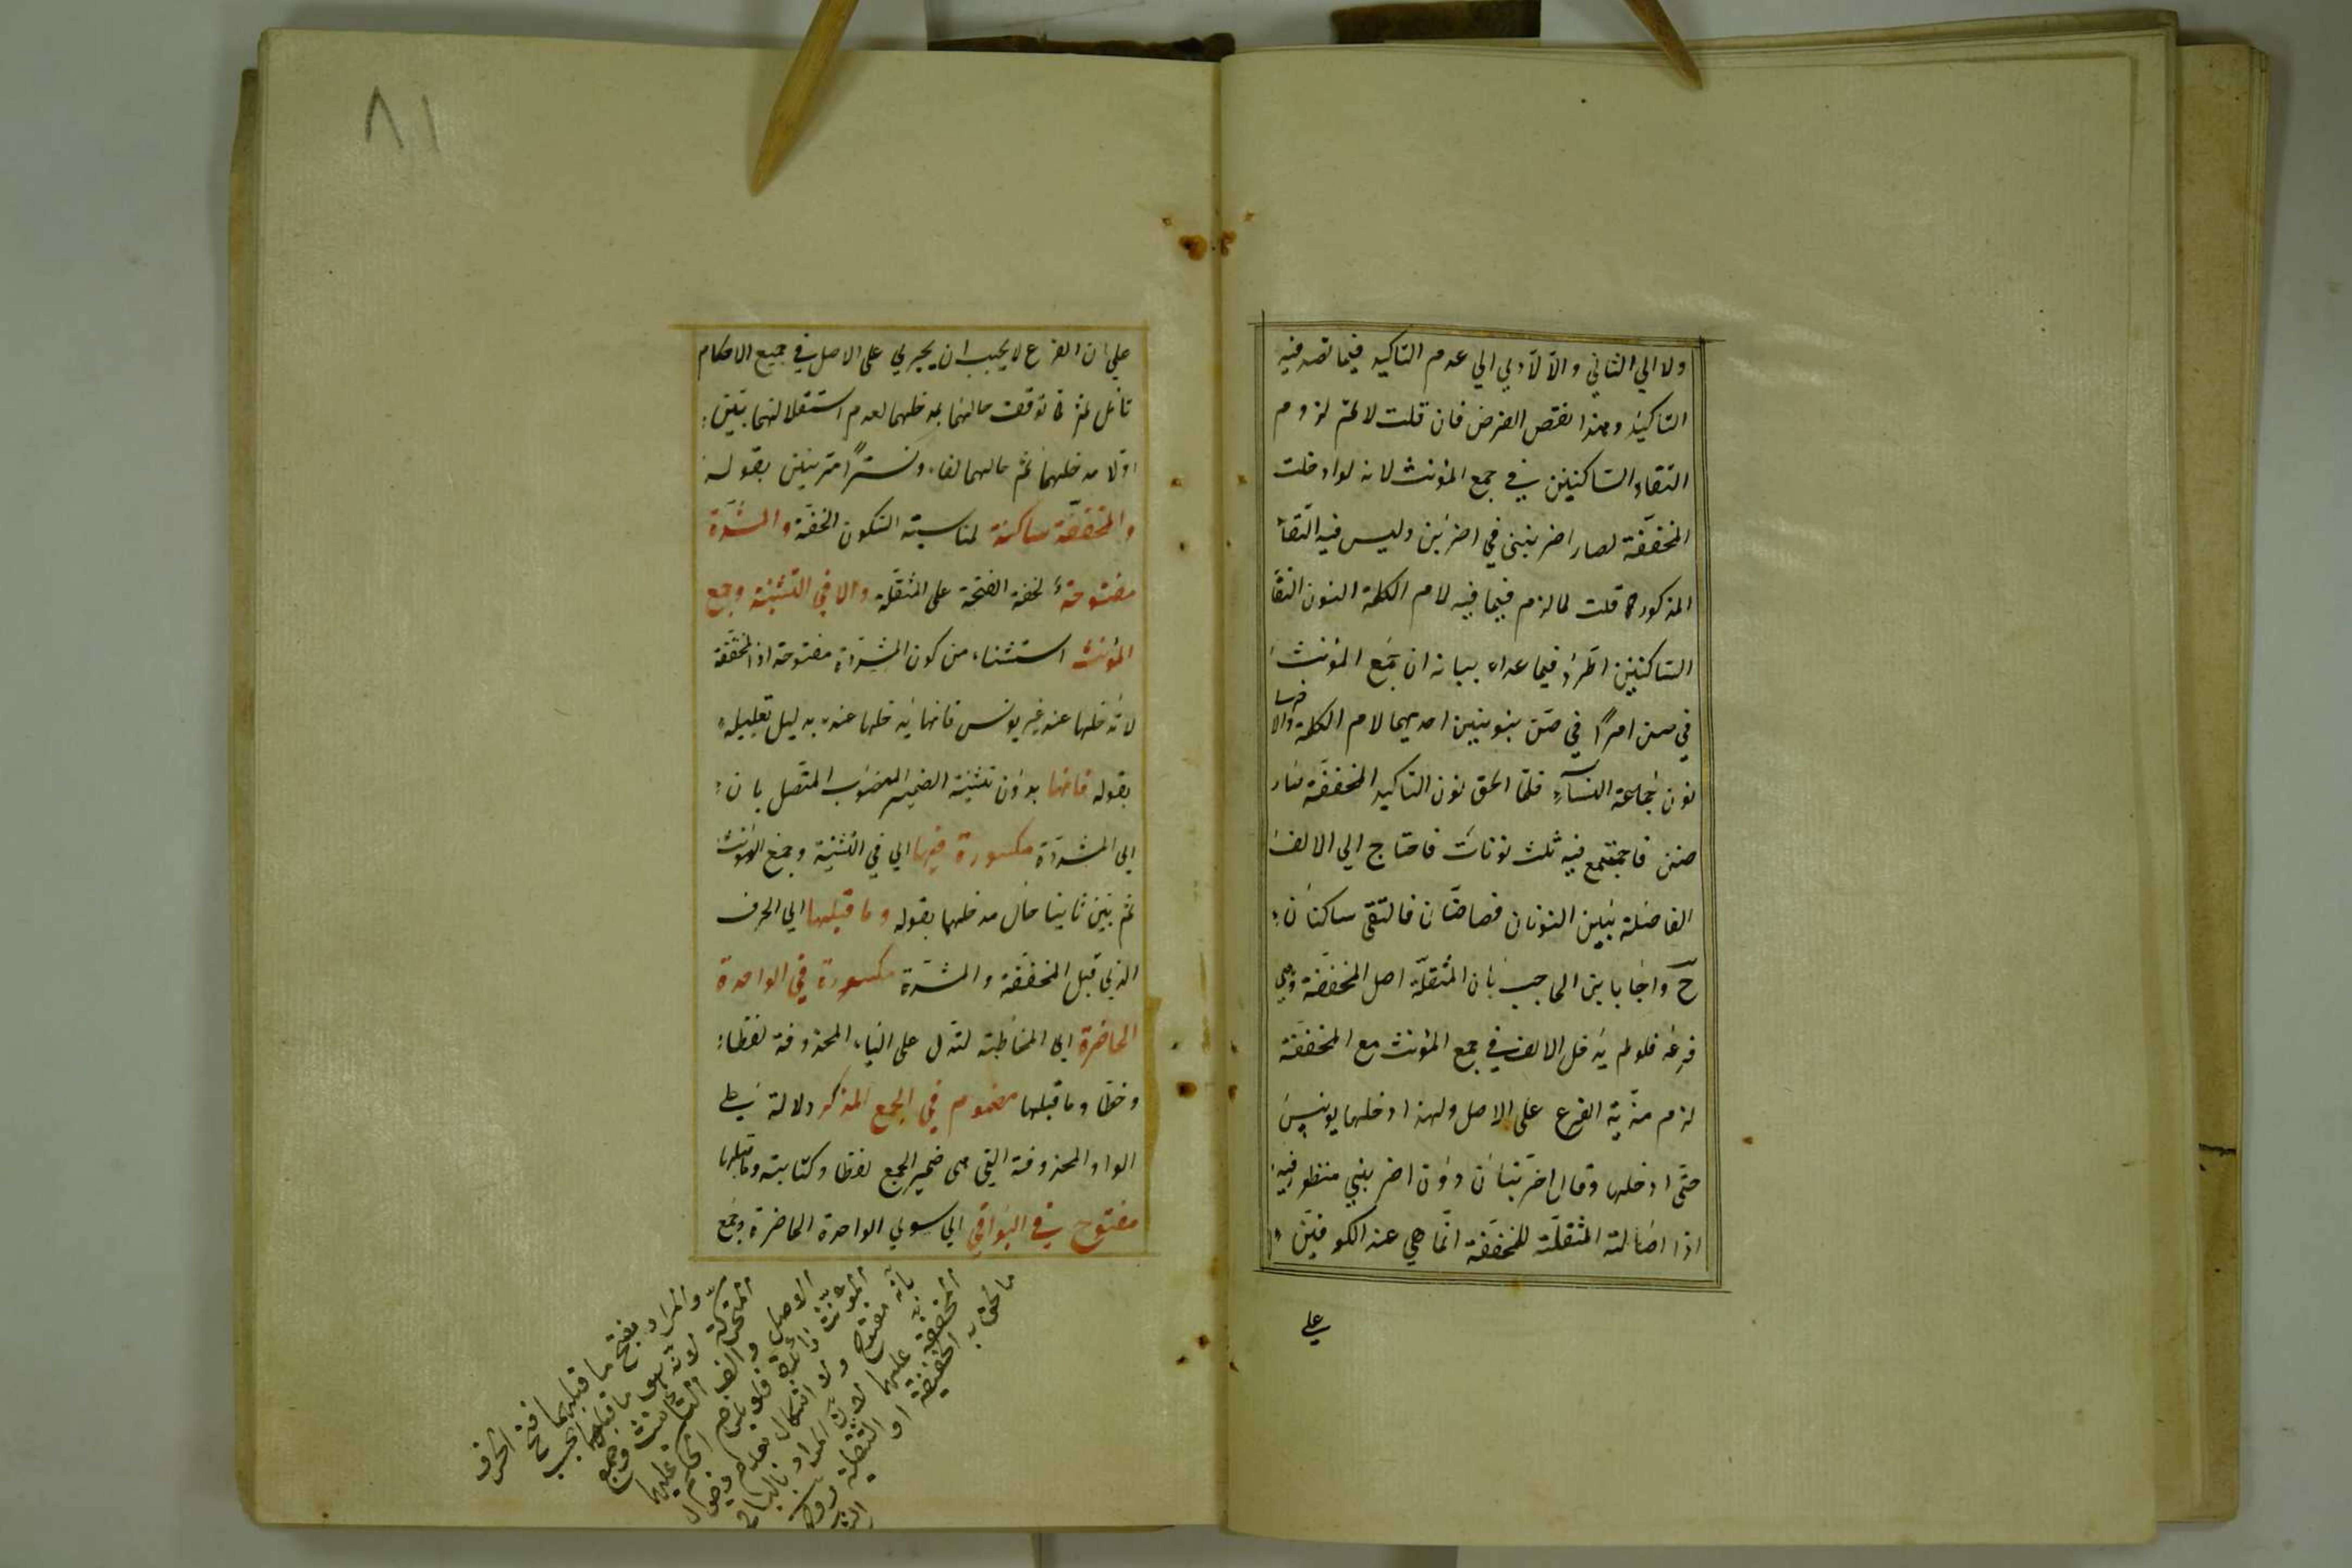 ولا الي الثاني والا لأدي الي عدم التاكيد فيما قصد فيه
التاكيد وهذا نقص الغرض فان قلت لا نم لزوم
التقاء الساكنين في جمع المؤنث لانه لو ادخلت
المخففة لصار اضربنني في اضربن وليس فيه التقاء
المذكور قلت لما لزم فيما فيه لام الكلمة النون التقاء
الساكنين اطرد فيما عداه بيانه ان جمع المؤنث
في صن امرا في صن بنونين احديهما لام الكلمة والاخري
نون جماعة النساء فلما الحق نون التاكيد المخففة صار
صنن فاجتمع فيه ثلث نونات فاحتاج الي الالف
الفاصلة بين النونان فصا صنان فالتقي ساكنان
ح واجاب ابن الحاجب بان المثقلة اصل المخففة وهي
فرعه فلو لم يدخل الالف في جمع المؤنث مع المخففة
لزم مزية الفرع علي الاصل ولهذا ادخلها يونس
حتي ادخلها وقال اضربنان دون اضربنني منظور فيه
اذا اصالته المثقلة للمخففة انما هي عند الكوفيين
علي
٨١
علي ان الفرع لا يجب ان يجري علي الاصل في جميع الاحكام
تأمل ثم توقف حالهما بمدخلهما لعدم استقلالهما بين
اولا مدخلهما ثم حالهما لفا ونشرا مرتبين بقوله
والمخففة ساكنة لمناسبته السكون الخفة والمشددة
مفتوحة لخفة الفتحة علي المثقلة والا في التثنية وجمع
المؤنث استثناء من كون المشددة مفتوحة اذ المخففة
لا تدخلها عند غير يونس فانها يدخلها عنده بدليل تعليله
بقوله فانها بدون تثنية الضمير المنصوب المتصل بان
اي المشددة مكسورة فيهما اي في التثنية وجمع المؤنث
ثم بين ثانيا حال مدخلها بقوله وما قبلها اي الحرف
الذي قبل المخففة والمشددة مكسورة في الواحدة
الحاضرة اي المخاطبة لتدل علي الياء المحذوفة لفظا
وخطا وما قبلها مضموم في الجمع المذكر دلالة علي
الواو المحذوفة التي هي ضمير الجمع لفظا وكتابته وما قبلها
مفتوح في البواقي اي سوي الواحدة الحاضرة وجمع
والمراد بفتح ما قبلهما فتح الحرف
المتحركة لانه هو ما قبلهما بحسب
الاصل والف التثنية وجمع
المؤنث زائدة فلو الحكم عليهما
بانه مفتوح ولا اشكال بعدم
المخففة عليهما لان المراد بالبواقي
ما لحق به الخفيفة او الثقيلة